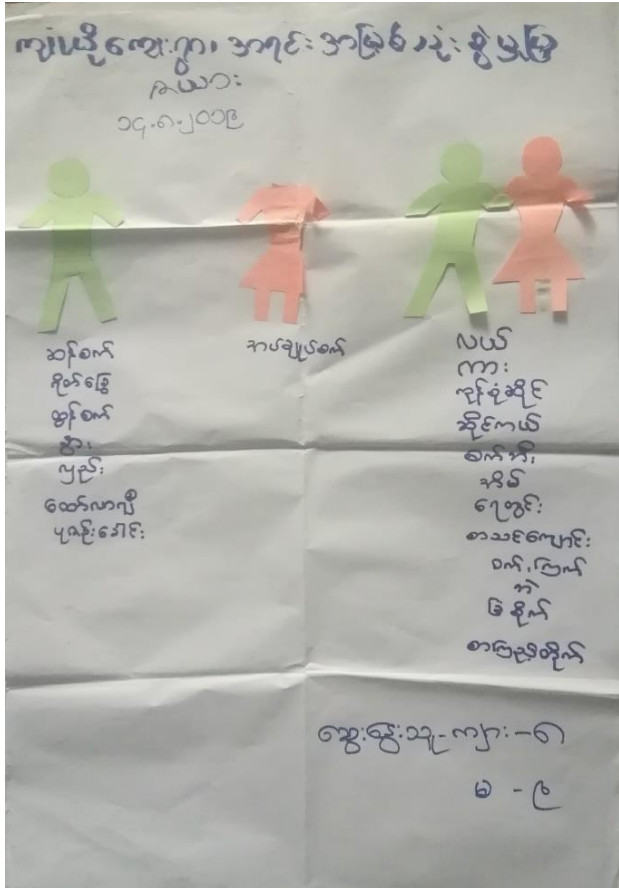 ကျုံယို့ကျေးရွာ၊ အရင်းအမြစ်သုံးစွဲမှုပြ
ဇယား
၁၄-၈-၂၀၁၉
ဆန်စက်
စိုက်ခြွေ
ထွန်စက်
နွား
လှည်း
ထော်လာဂျီ
ပုဇွန်းခေါင်း
အပ်ချုပ်စက်
လယ်
ကား
ကုန်စုံဆိုင်
ဆိုင်ကယ်
စက်ဘီး
အိမ်
ရေတွင်း
စာသင်ကျောင်း
ဝက်၊ ကြက်
ဘဲ
ခြံစိုက်
စာကြည့်တိုက်
ဆွေးနွေးသူ-ကျား-၈
မ - ၉